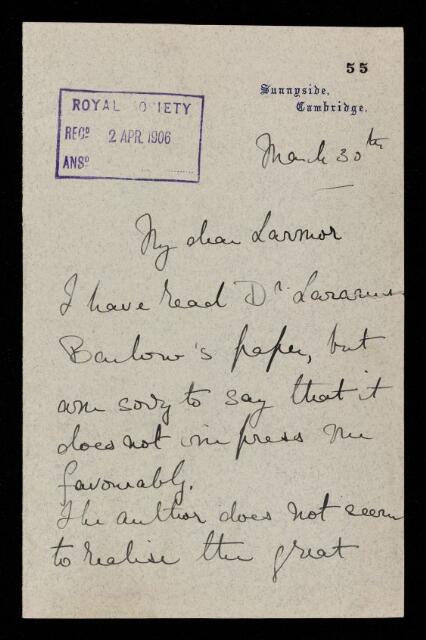 55
Sunnyside,
Cambridge.
ROYAL SOCIETY
RECD 2 APR. 1906
ANSD
March 30th
My dear Larmor
I have read Dr. Lazarus
Barlow's paper, but
am sorry to say that it
does not impress me
favourably.
The author does not seem
to realise the great